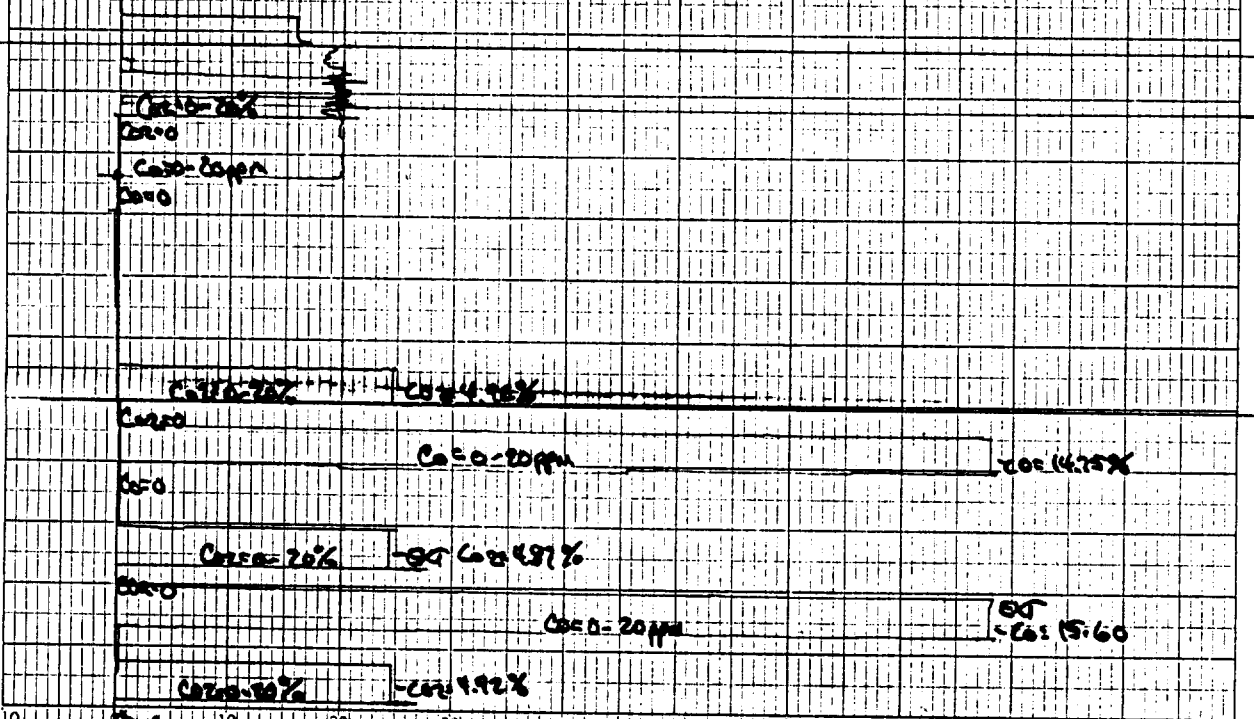 CO2=0-20%
CO2=0
CO=0-20ppm
CO=0
CO2=0-20%
CO2=0
CO=0-20ppm
CO=14.75%
CO=0
CO2=0-20%
CO2=4.87%
CO2=0
CO=0-20ppm
CO=15.60
CO2=0-20%
CO2=4.92%
10